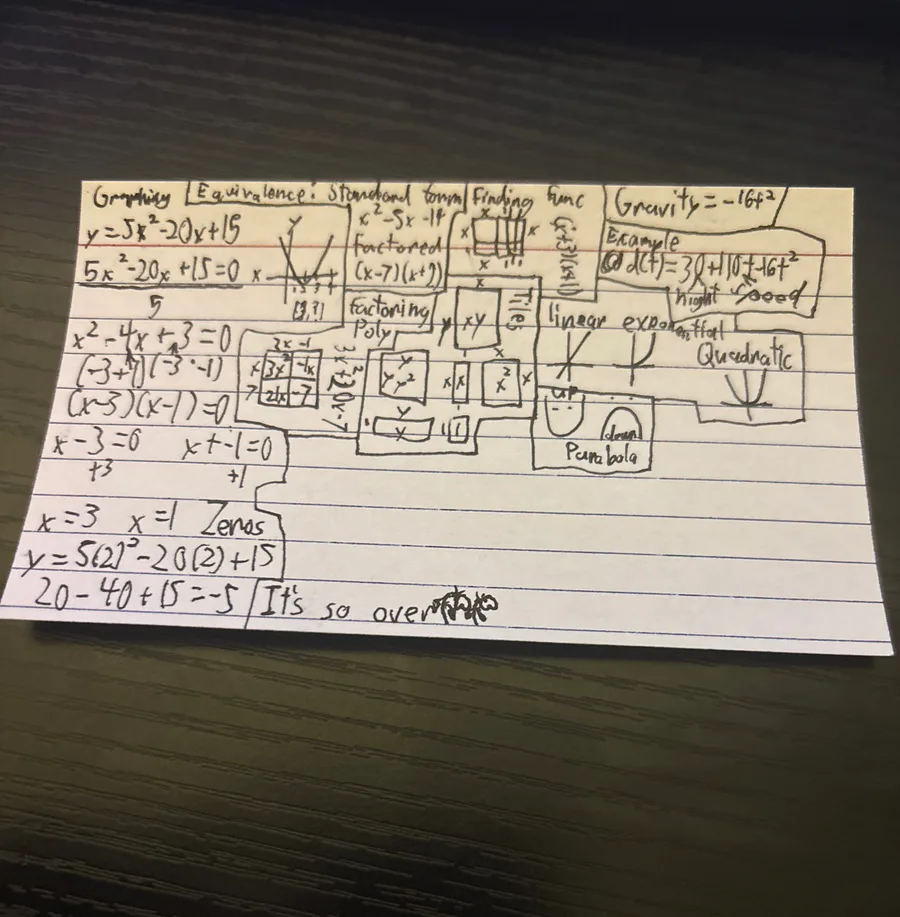 Graphing
y=5x²-20x+15
5x²-20x+15=0
5
x²-4x+3=0
(-3+-1)(-3·-1)
(x-3)(x-1)=0
x-3=0 x+-1=0
+3 +1
x=3 x=1 Zeros
y=5(2)²-20(2)+15
20-40+15=-5
It's so over
y
x
Equivalence: Standard form
x²-5x-14
Factored
(x-7)(x+2)
Factoring
Poly
2x -1
x 3x² -1x
7 21x -7
3x²+20x-7
Finding Func
x
x x
x
Tiles
x
y xy
y
y y²
x
x x
x
x² x
y
x
1 1
Gravity=-16t²
Example
d(t)=30+110t-16t²
hight speed
linear exponential
Quadratic
up
down
Parabola